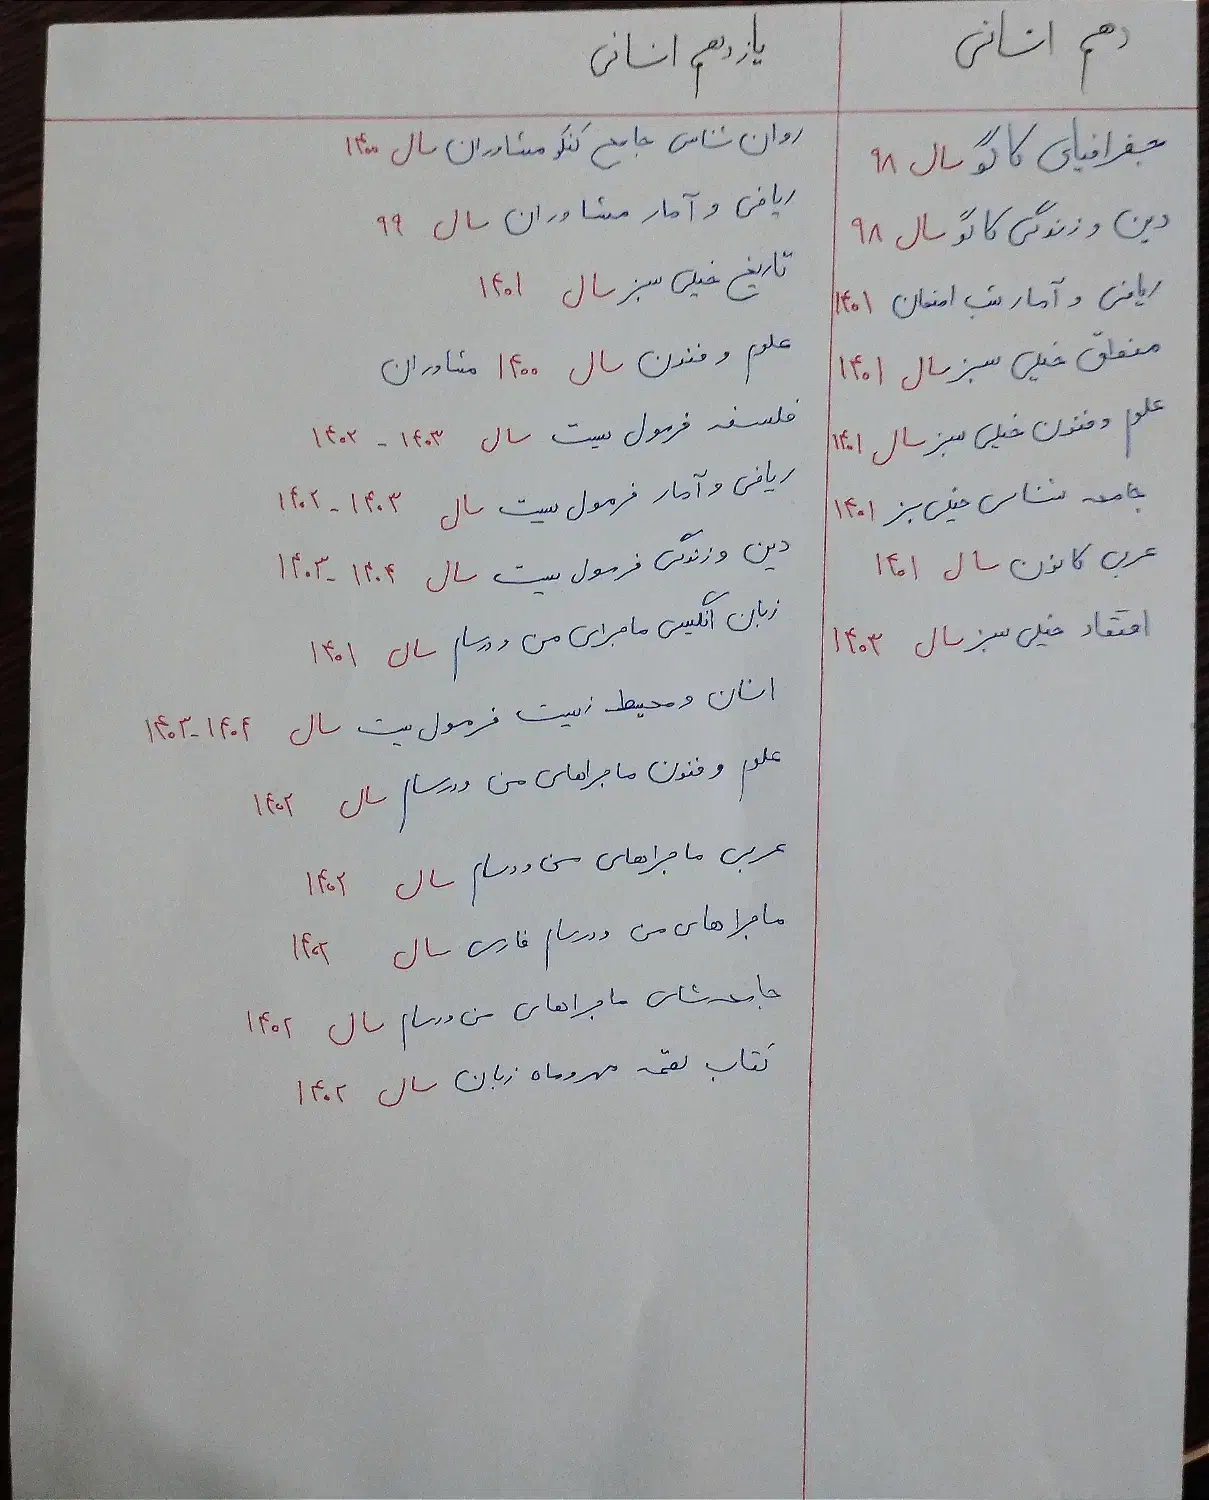 دهم انسانی
جغرافیای گاگو سال ۹۸
دین و زندگی گاگو سال ۹۸
ریاضی و آمار شب امتحان ۱۴۰۱
منطق خیلی سبز سال ۱۴۰۱
علوم و فنون خیلی سبز سال ۱۴۰۱
جامعه شناسی خیلی سبز ۱۴۰۱
عربی کانون سال ۱۴۰۱
اقتصاد خیلی سبز سال ۱۴۰۳
یازدهم انسانی
روان شناسی جامع کنکور مشاوران سال ۱۴۰۰
ریاضی و آمار مشاوران سال ۹۹
تاریخ خیلی سبز سال ۱۴۰۱
علوم و فنون سال ۱۴۰۰ مشاوران
فلسفه فرمول بیست سال ۱۴۰۳ - ۱۴۰۲
ریاضی و آمار فرمول بیست سال ۱۴۰۳ - ۱۴۰۲
دین و زندگی فرمول بیست سال ۱۴۰۴ - ۱۴۰۳
زبان انگلیسی ماجرای من و درسام سال ۱۴۰۱
انسان و محیط زیست فرمول بیست سال ۱۴۰۴ - ۱۴۰۳
علوم و فنون ماجراهای من و درسام سال ۱۴۰۲
عربی ماجراهای من و درسام سال ۱۴۰۲
ماجراهای من و درسام فارسی سال ۱۴۰۲
جامعه شناسی ماجراهای من و درسام سال ۱۴۰۲
کتاب لقمه مهروماه زبان سال ۱۴۰۲